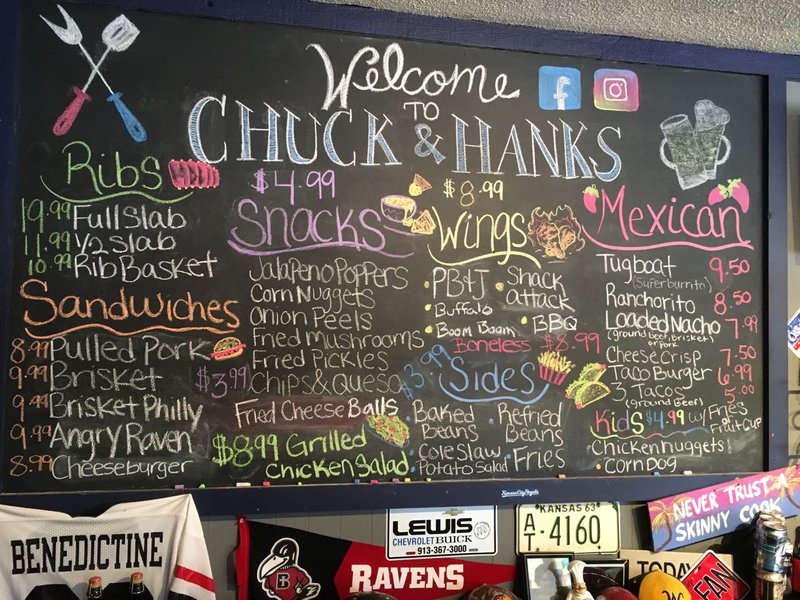 Welcome
TO
CHUCK & HANKS
Ribs
19.99 Full Slab
11.99 1/2 Slab
10.99 Rib Basket
Sandwiches
8.99 Pulled Pork
9.99 Brisket
9.99 Brisket Philly
9.99 Angry Raven
8.99 Cheeseburger
$4.99
Snacks
Jalapeno Poppers
Corn Nuggets
Onion Peels
Fried Mushrooms
Fried Pickles
$3.99 Chips & Queso
Fried Cheese Balls
$8.99 Grilled
Chicken Salad
$8.99
Wings
PB&J
Buffalo
Boom Baam
Snack
attack
BBQ
Boneless $8.99
3.99
Sides
Baked
Beans
Coleslaw
Potato Salad
Refried
Beans
Fries
Mexican
Tugboat 9.50
(Superburrito)
Ranchorito 8.50
Loaded Nacho 7.99
(ground beef, Brisket
or Pork)
Cheese Crisp 7.50
Taco Burger 6.99
3 Tacos 5.00
(Ground Beef)
Kids $4.99 w/ Fries
Fruit Cup
Chicken Nuggets
Corn Dog
BENEDICTINE
RAVENS
LEWIS
CHEVROLET BUICK
913-367-3000
Kansas City Royals
KANSAS 63
AT 4160
NEVER TRUST A
SKINNY COOK
TODAY
FAN